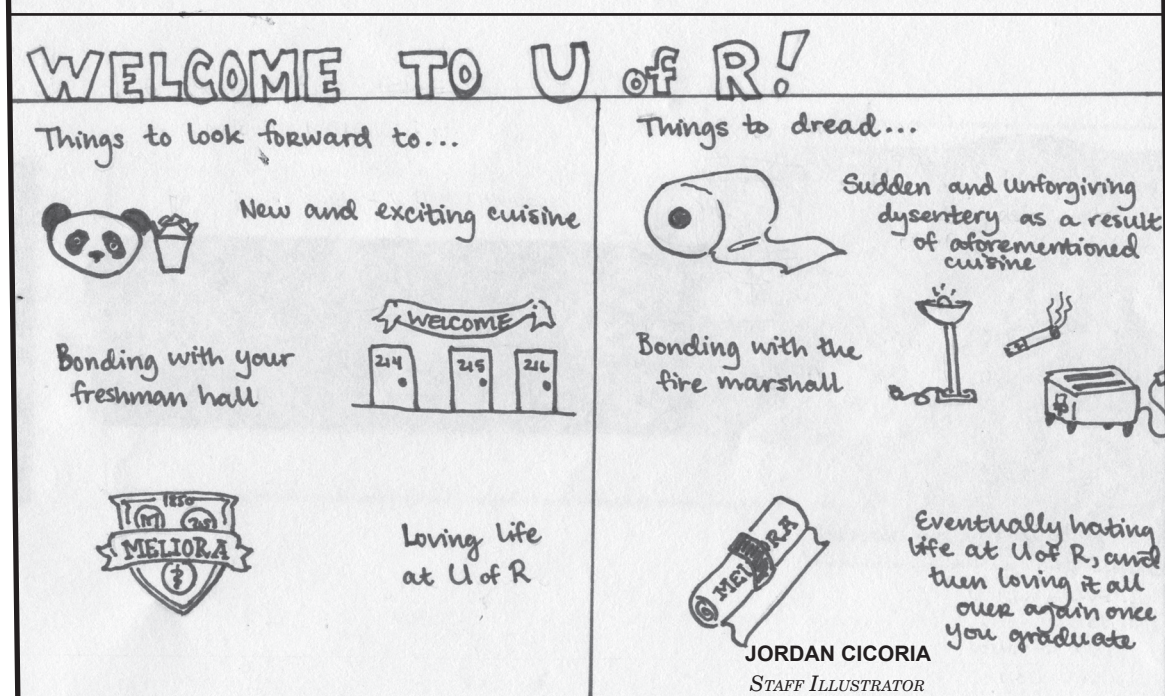 WELCOME TO U of R!
Things to look forward to...
New and exciting cuisine
WELCOME
214 215 216
Bonding with your
freshman hall
1850
MELIORA
Loving life
at U of R
Things to dread...
Sudden and unforgiving
dysentery as a result
of aforementioned
cuisine
Bonding with the
fire marshall
MEL RA
Eventually hating
life at U of R, and
then loving it all
over again once
you graduate
JORDAN CICORIA
STAFF ILLUSTRATOR